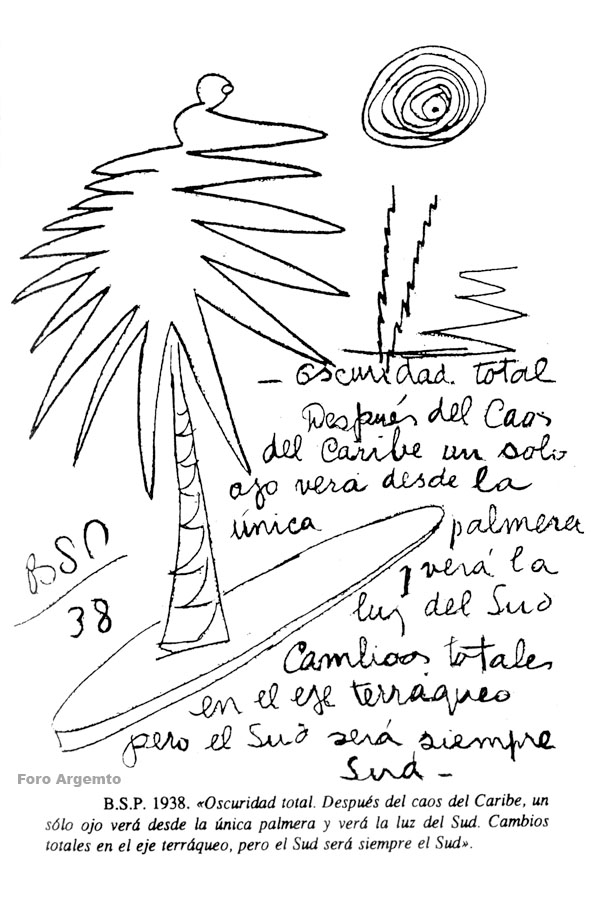 — Oscuridad. total
Después del Caos
del Caribe un solo
ojo verá desde la
única palmera
y verá la
luz del Sud
Cambios totales
en el eje terráqueo
pero el Sud será siempre
Sud —
BSP
38
Foro Argemto
B.S.P. 1938. «Oscuridad total. Después del caos del Caribe, un
sólo ojo verá desde la única palmera y verá la luz del Sud. Cambios
totales en el eje terráqueo, pero el Sud será siempre el Sud».